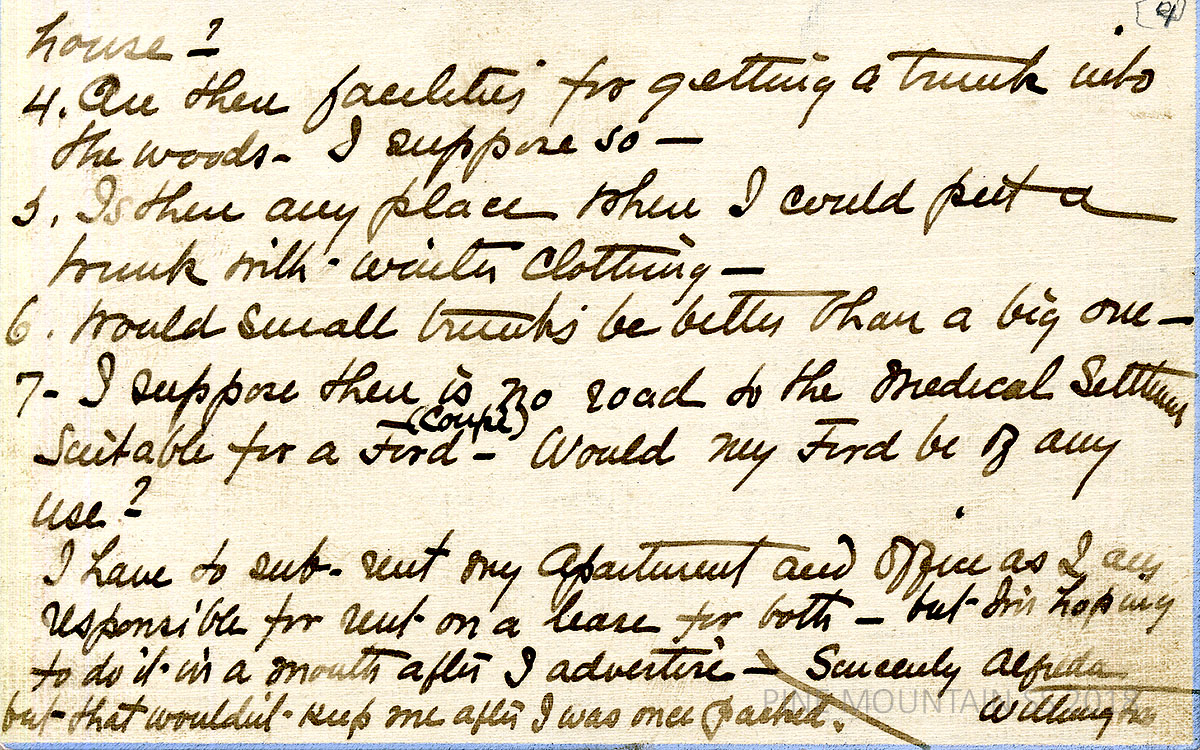 house?
4. Are there facilities for getting a trunk into
the woods - I suppose so —
5. Is there any place where I could put a
trunk with winter clothing —
6. Would small trunks be better than a big one —
7 - I suppose there is no road to the Medical Settlement
(Coupé)
Suitable for a Ford - Would my Ford be of any
use?
I have to sub-rent my Apartment and office as I am
responsible for rent on a lease for both — but am hoping
to do it in a month after I advertise — Sincerely Alfreda
but that wouldn't keep me after I was once packed. Withington
PINE MOUNTAIN S 2017